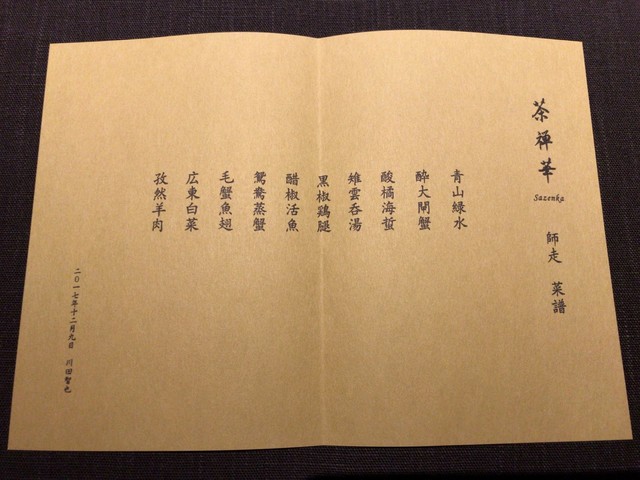 茶禅華
Sazenka
師走 菜譜
青山緑水
酔大閘蟹
酸橘海蜇
雉雲呑湯
黒椒鶏腿
醋椒活魚
鴛鴦蒸蟹
毛蟹魚翅
広東白菜
孜然羊肉
二〇一七年十二月九日 川田智也